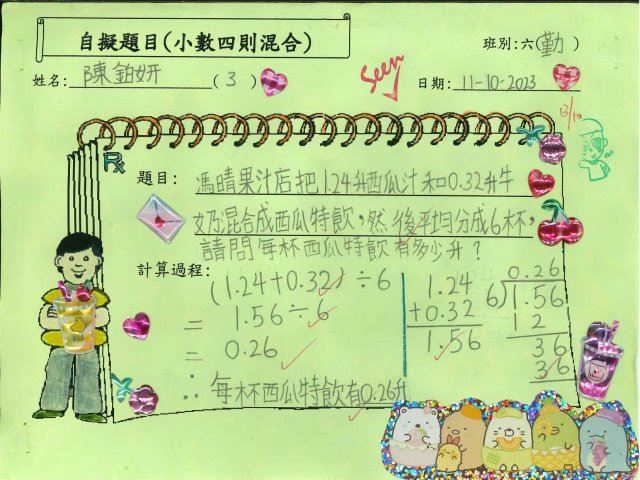 自擬題目(小數四則混合)
班別:六(勤)
姓名: 陳鉑妍 (3)
Seen
日期: 11-10-2023
題目: 馮晴果汁店把1.24升西瓜汁和0.32升牛
奶混合成西瓜特飲,然後平均分成6杯,
請問每杯西瓜特飲有多少升?
計算過程:
(1.24+0.32)÷6
= 1.56÷6
= 0.26
∴ 每杯西瓜特飲有0.26升
1.24
+0.32
1.56
0.26
6)1.56
1 2
3 6
3 6